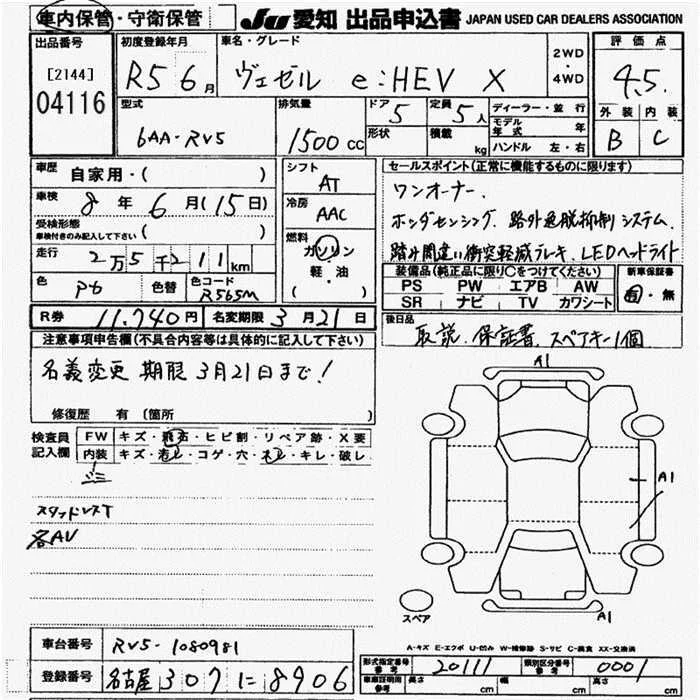 車内保管・守衛保管 JU 愛知 出品申込書 JAPAN USED CAR DEALERS ASSOCIATION
出品番号 初度登録年月 車名・グレード 2WD・4WD 評価点
[2144] 04116 R5 6月 ヴェゼル e:HEV X 4.5
型式 排気量 ドア 定員 ディーラー・並行 外装 内装
6AA-RV5 1500cc 5 5人 モデル年式 年 B C
形状 積載 kg ハンドル 左・右
車歴 自家用・( ) シフト セールスポイント(正常に機能するものに限ります)
車検 8年 6月(15日) AT ワンオーナー.
受検形態 冷房 ホンダセンシング. 路外逸脱抑制システム.
車検付きのみ記入して下さい ( ) AAC 踏み間違い衝突軽減ブレーキ. LEDヘッドライト
走行 2万5千211km 燃料 ガソリン 装備品(純正品に限り○をつけてください) 新車保証書
色 色替 色コード 軽・油 PS PW エアB AW 有・無
Pホ R565M ( ) SR ナビ TV カワシート
R券 11.740円 名変期限 3月21日 後日品
注意事項申告欄(不具合内容等は具体的に記入して下さい) 取説. 保証書. スペアキー1個
名義変更 期限 3月21日まで!
修復歴 有〔箇所 〕
検査員記入欄 FW キズ・飛石・ヒビ割・リペア跡・X要
内装 キズ・汚レ・コゲ・穴・スレ・キレ・破レ
ゴミ
スタッドレスT
各AV
A1
A1
A1
スペア
A-キズ E-エクボ U-凹み W-補修跡 S-サビ C-腐食 XX-交換済
車台番号 RV5-1080981
登録番号 名古屋 307 に 8906
形式指定番号 参考 20111 類別区分番号 参考 0001
車庫証明用 参考 長さ cm 幅 cm 高さ cm